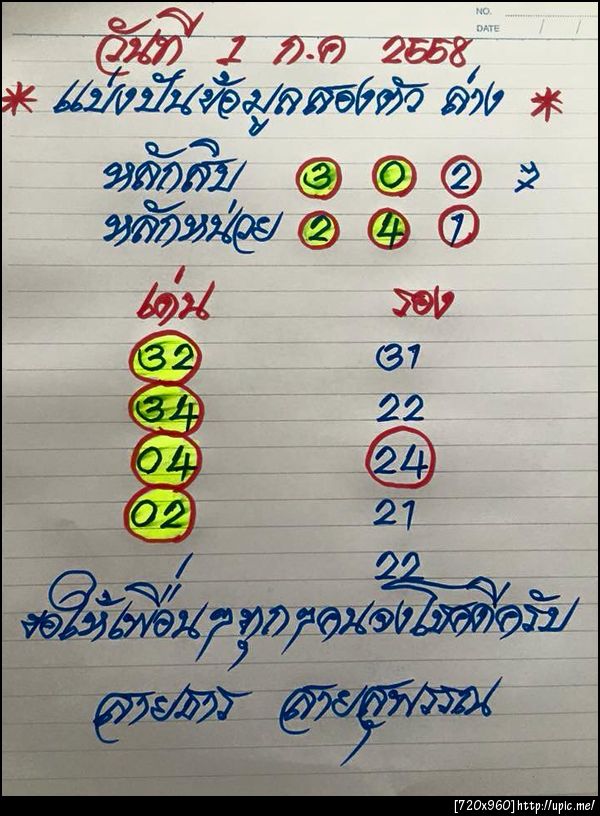 NO.
DATE / /
วันที่ 1 ก.ค 2558
* แบ่งปันข้อมูลสองตัว ล่าง *
หลักสิบ 3 0 2
หลักหน่วย 2 4 1
เด่น รอง
32 31
34 22
04 24
02 21
22
ขอให้เพื่อนๆทุกๆคนจงโชคดีครับ
สายธาร สายสุพรรณ
[720x960]http://upic.me/